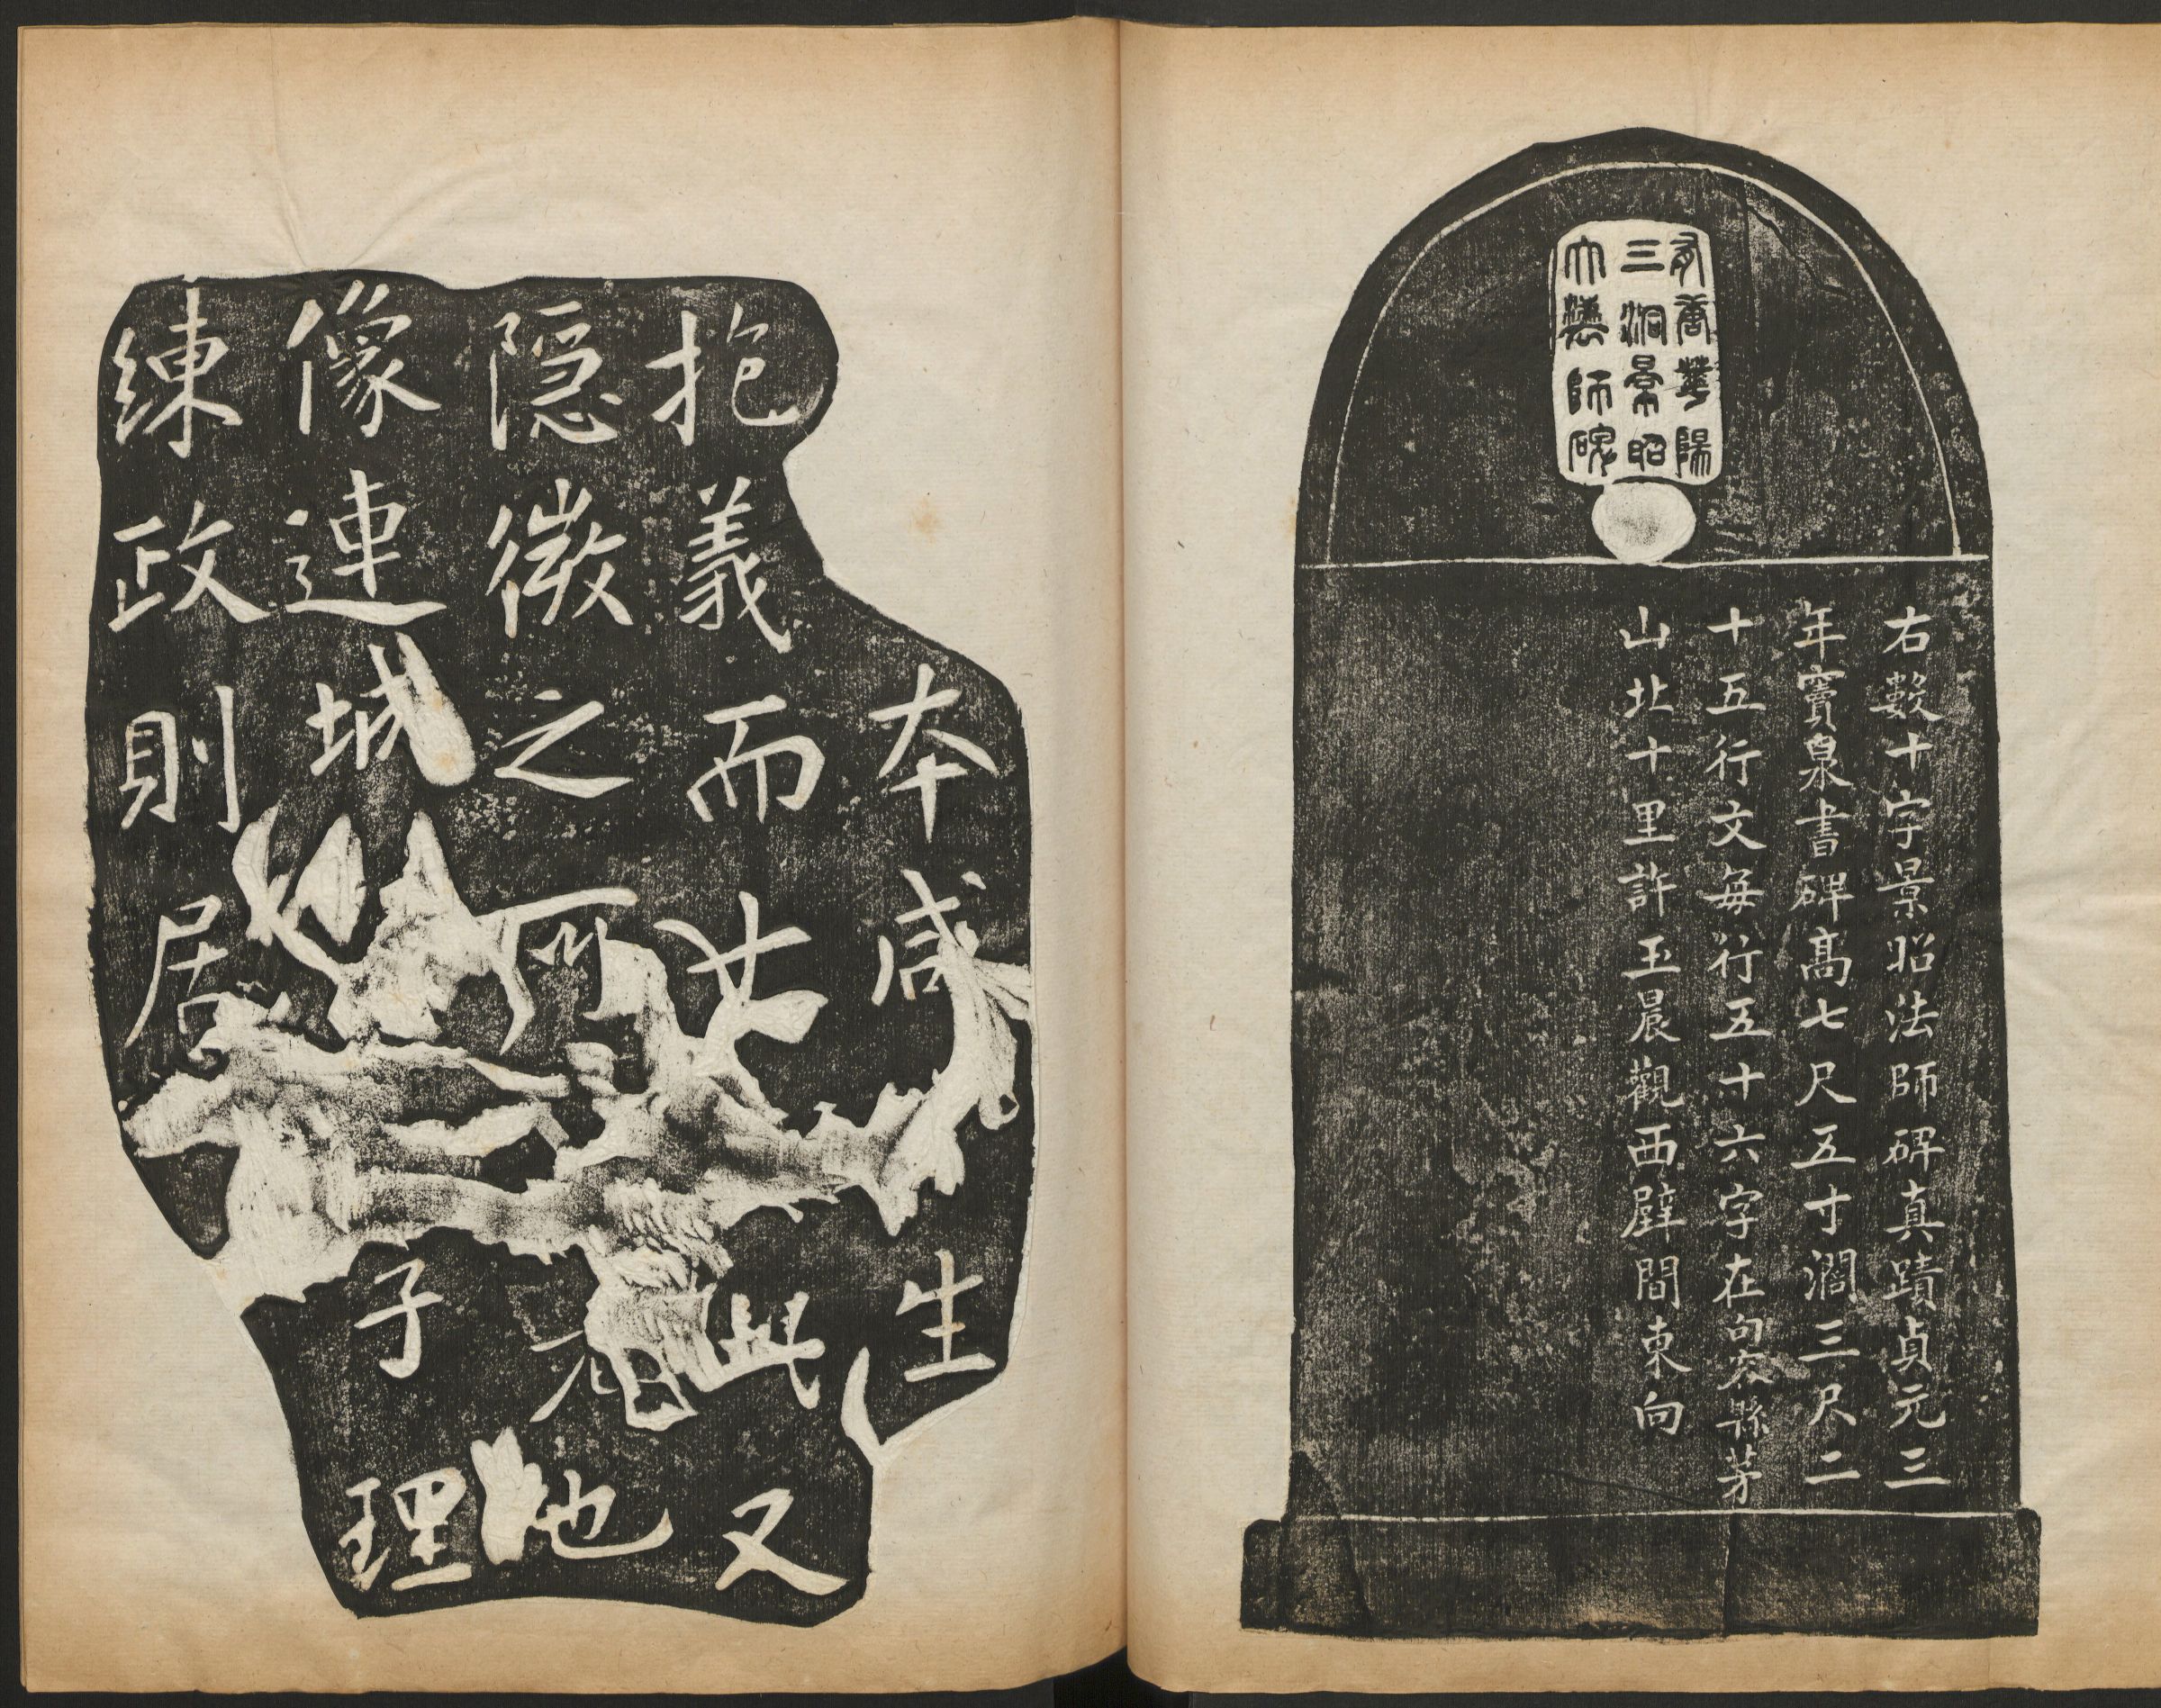 有唐華陽
三洞景昭
大法師碑
右數十字景昭法師碑真蹟貞元三
年竇臮書碑高七尺五寸濶三尺二
十五行文每行五十六字在句容縣茅
山北十里許玉晨觀西壁間東向
本咸生
抱義而此又
隱微之地
像連城子理
練政則居